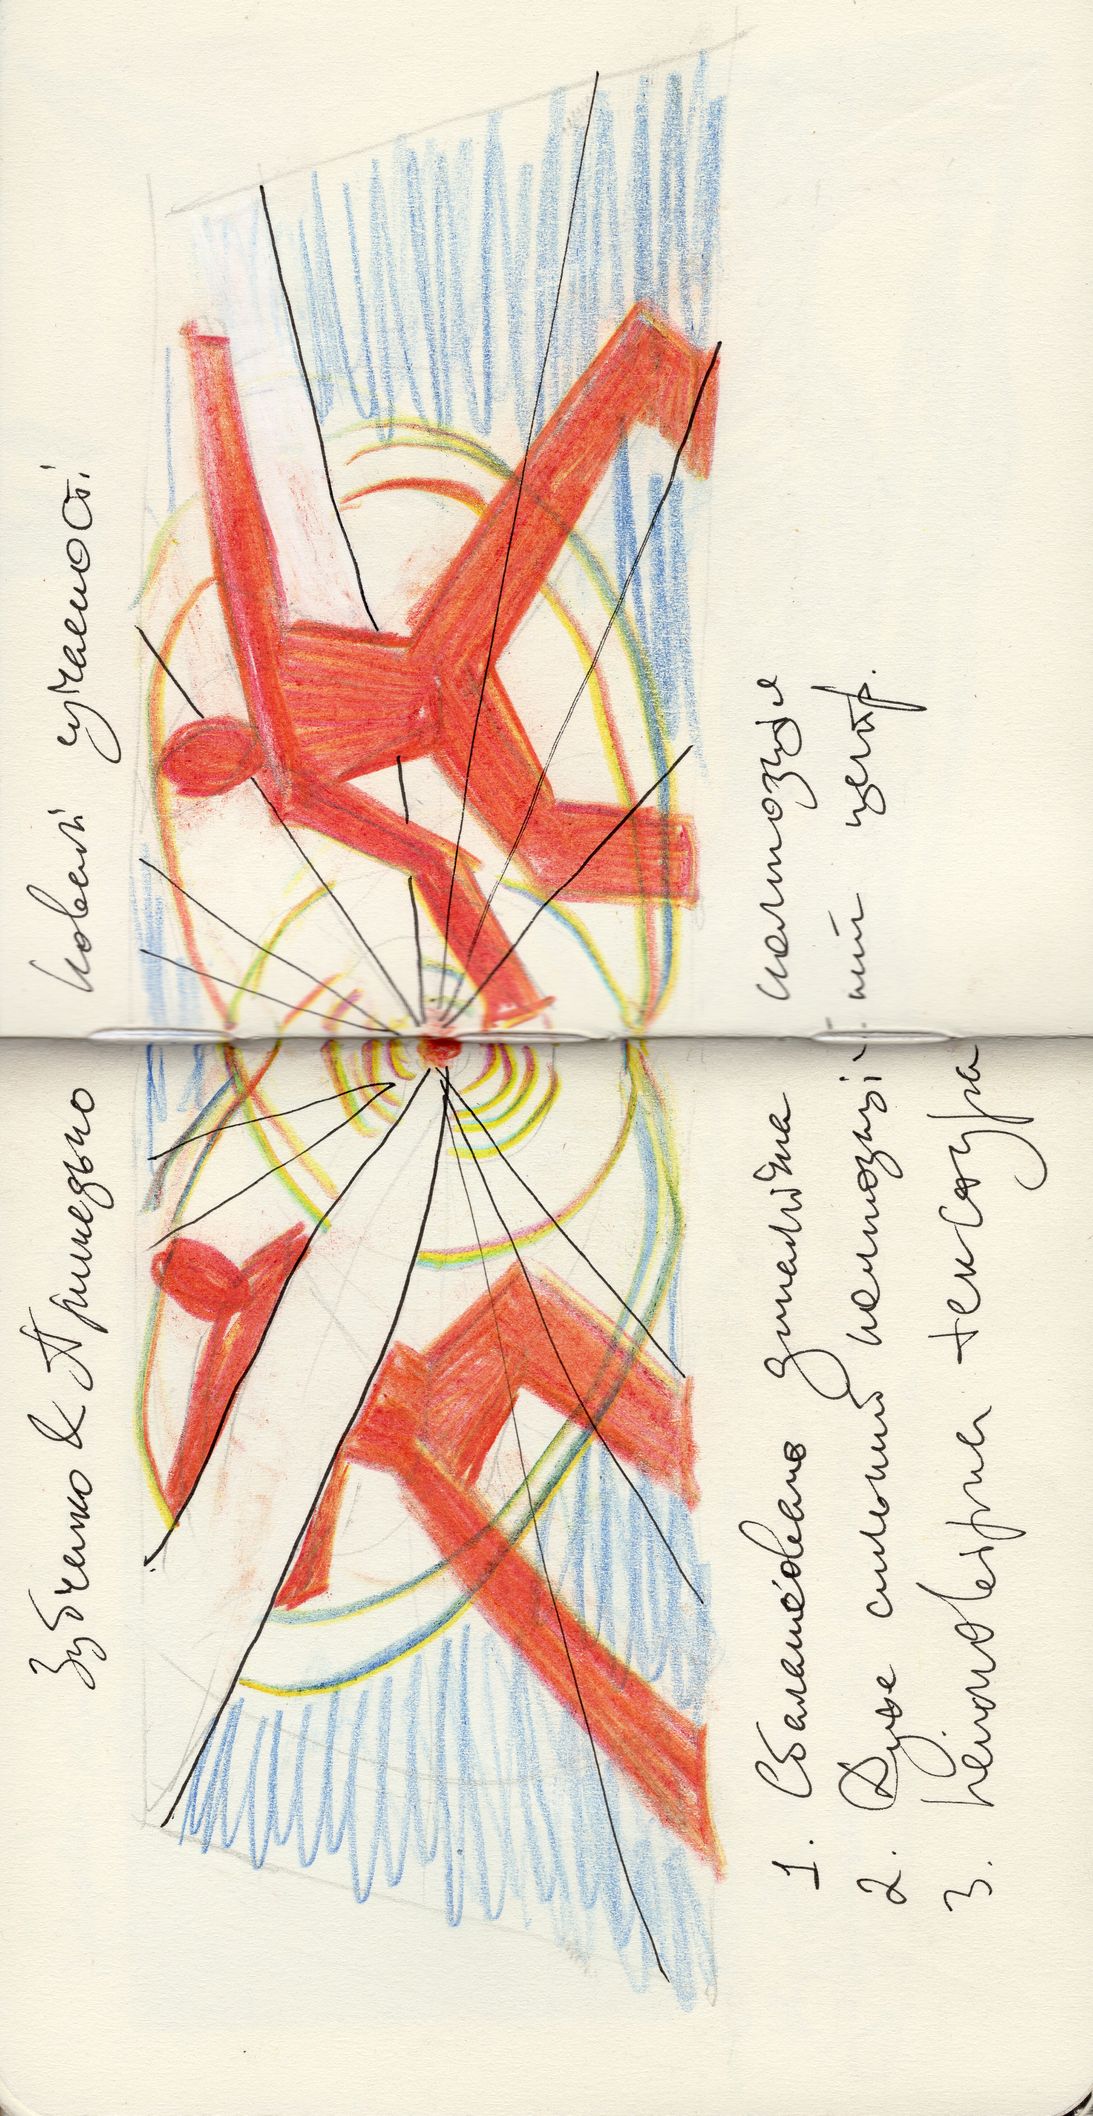 Зубченко & Пришедько Ковалі сучасності
1. Збалансована динамічна композиція
2. Дуже сильний композиційний центр.
3. Неімовірна текстура